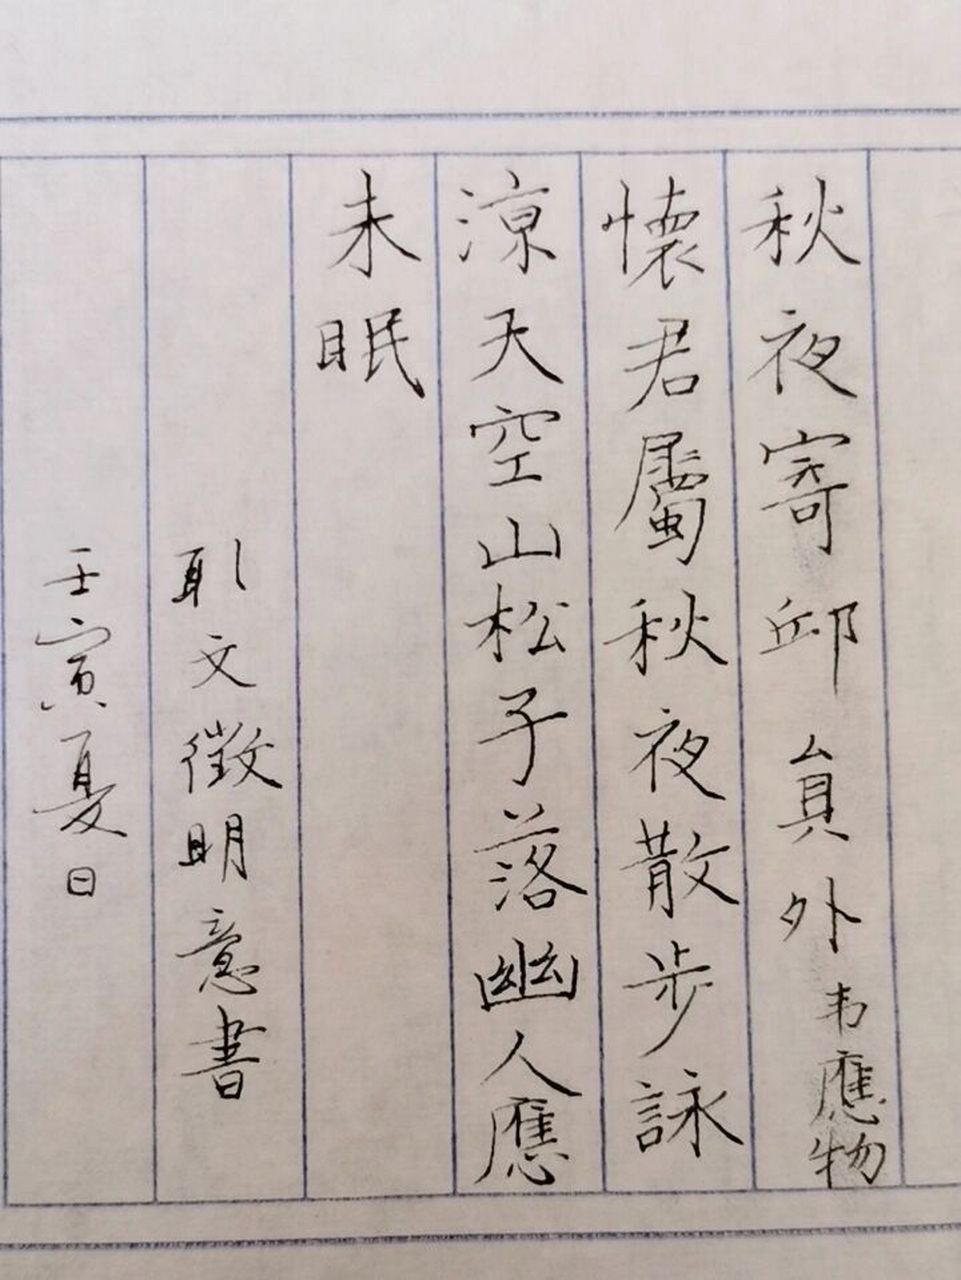 秋夜寄邱員外 韦應物
懷君屬秋夜散步詠
涼天空山松子落幽人應
未眠
取文徵明意書
壬寅夏日